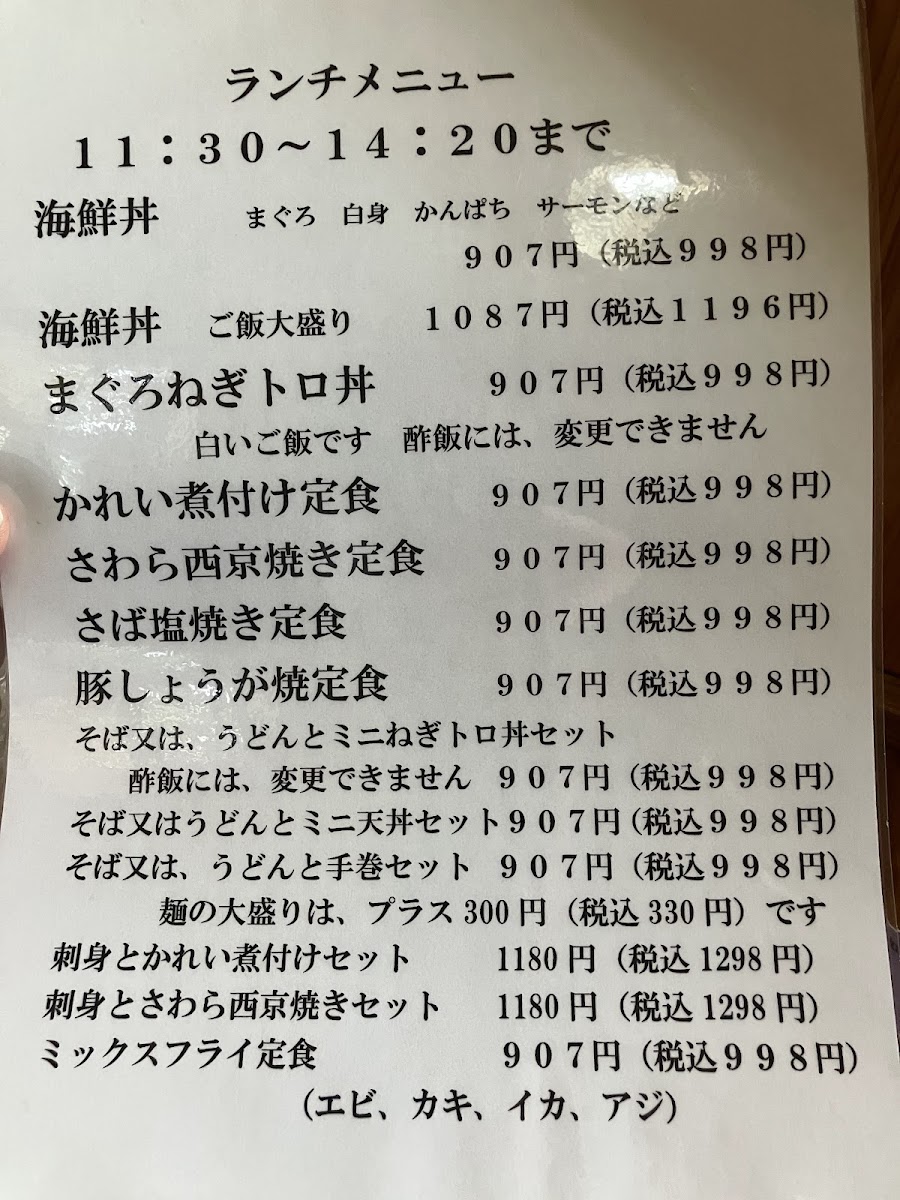 ランチメニュー
１１：３０～１４：２０まで
海鮮丼　まぐろ　白身　かんぱち　サーモンなど
９０７円（税込９９８円）
海鮮丼　ご飯大盛り　１０８７円（税込１１９６円）
まぐろねぎトロ丼　９０７円（税込９９８円）
白いご飯です　酢飯には、変更できません
かれい煮付け定食　９０７円（税込９９８円）
さわら西京焼き定食　９０７円（税込９９８円）
さば塩焼き定食　９０７円（税込９９８円）
豚しょうが焼定食　９０７円（税込９９８円）
そば又は、うどんとミニねぎトロ丼セット
酢飯には、変更できません　９０７円（税込９９８円）
そば又はうどんとミニ天丼セット９０７円（税込９９８円）
そば又は、うどんと手巻セット　９０７円（税込９９８円）
麺の大盛りは、プラス300円（税込330円）です
刺身とかれい煮付けセット　1180円（税込1298円）
刺身とさわら西京焼きセット　1180円（税込1298円）
ミックスフライ定食　９０７円（税込９９８円）
（エビ、カキ、イカ、アジ）